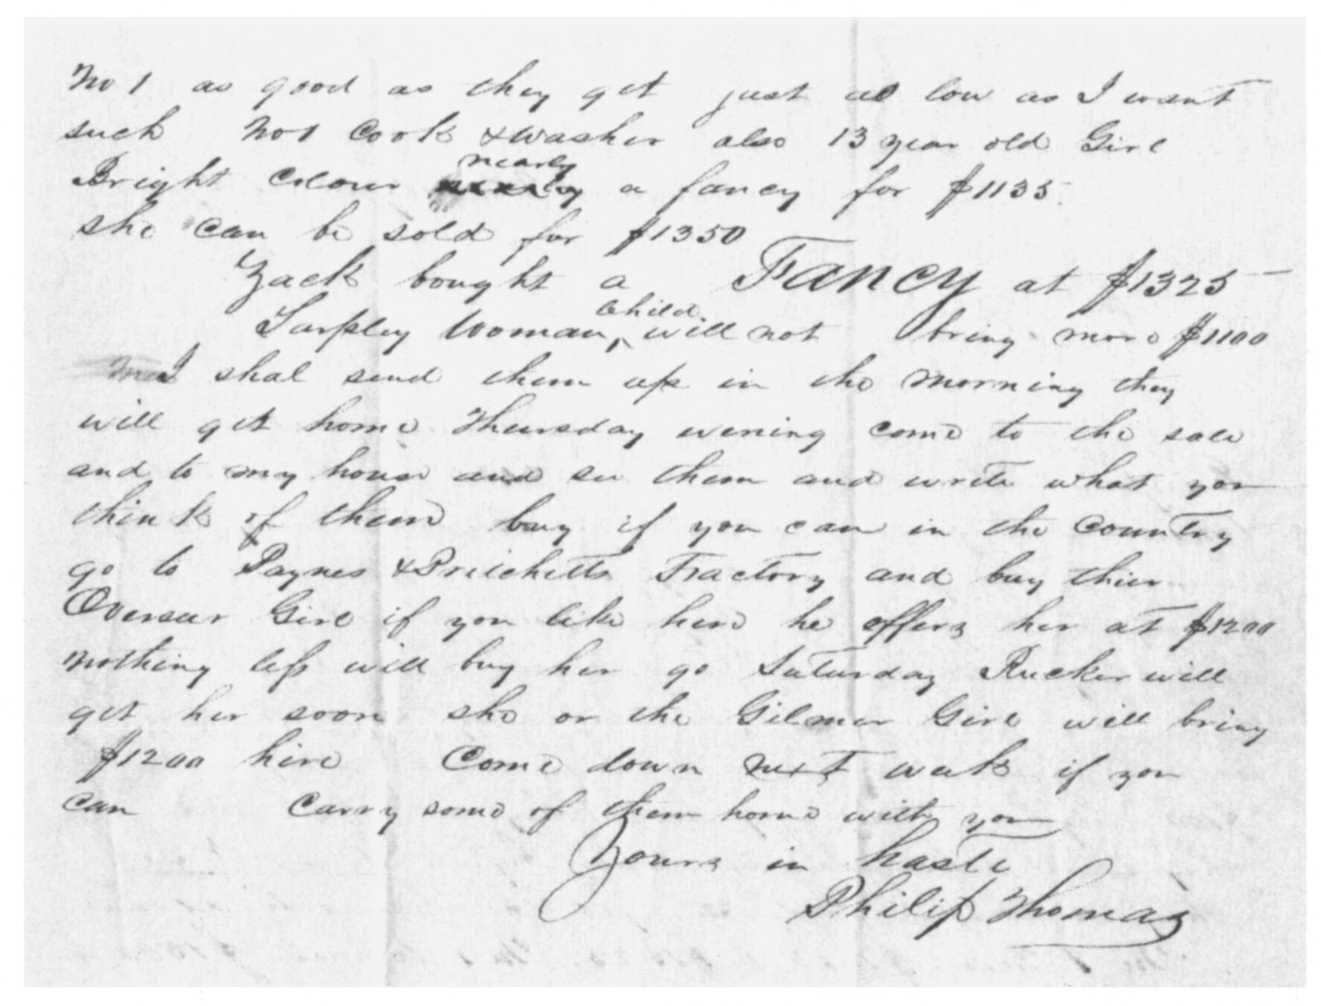 No 1 as good as they get just as low as I want
such No1 Cook & washer also 13 year old Girl
Bright Colour nearly a fancy for $1135
she can be sold for $1350
Zack bought a Fancy at $1325
Tarpley Woman, Child will not bring more $1100
I shal send them up in the morning they
will get home Thursday evening come to the sale
and to my house and see them and write what you
think of them buy if you can in the Country
go to Paynes & Pritchetts Fractory and buy thier
Overseer Girl if you like here he offers her at $1200
nothing less will buy her go Saturday Rucker will
get her soon she or the Gilmer Girl will bring
$1200 here Come down next week if you
can Carry some of them home with you
Yours in haste
Philip Thomas